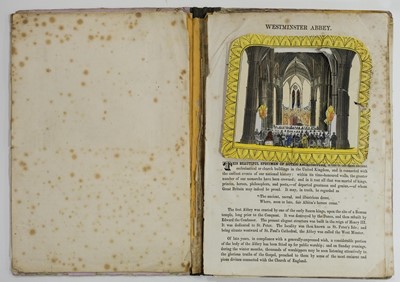 WESTMINSTER ABBEY.
THIS BEAUTIFUL SPECIMEN OF GOTHIC ARCHITECTURE,
ecclesiastical or church buildings in the United Kingdom, and is connected with
the earliest events of our national history: within its time-honoured walls, the greater
number of our monarchs have been crowned; and in it rest all that was mortal of kings,
princes, heroes, philosophers, and poets,—of departed greatness and genius—of whom
Great Britain may indeed be proud. It may, in truth, be regarded as
"The ancient, sacred, and illustrious dome,
Where, soon or late, fair Albion's heroes come."
The first Abbey was erected by one of the early Saxon kings, upon the site of a Roman
temple, long prior to the Conquest. It was destroyed by the Danes, and then rebuilt by
Edward the Confessor. The present elegant structure was built in the reign of Henry III.
It was dedicated to St. Peter. The locality was then known as St. Peter's Isle; and
being situate westward of St. Paul's Cathedral, the Abbey was called the West Minster.
Of late years, in compliance with a generally-expressed wish, a considerable portion
of the body of the Abbey has been fitted up for public worship; and on Sunday evenings,
during the winter months, thousands of worshippers may be seen listening attentively to
the glorious truths of the Gospel, preached to them by some of the most eminent and
pious divines connected with the Church of England.